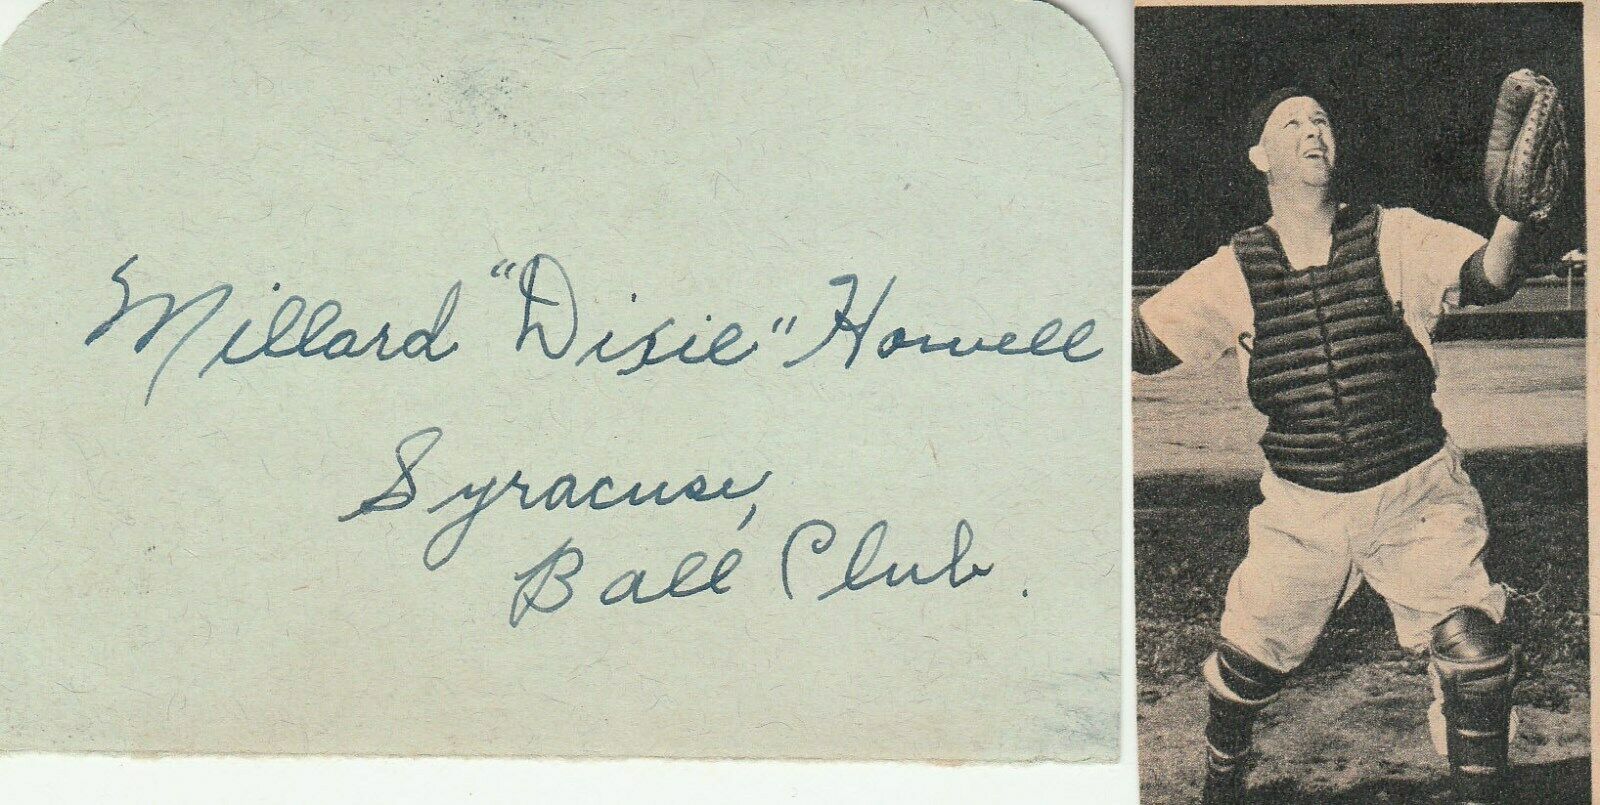 Millard "Dixie" Howell
Syracuse,
Ball Club.